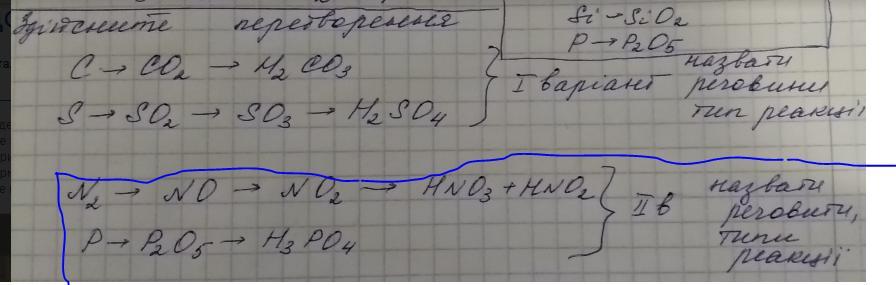 Здійсните перетворення
Si → SiO2
P → P2O5
C → CO2 → H2CO3
S → SO2 → SO3 → H2SO4
I варіант
назвати
речовини
тип реакції
N2 → NO → NO2 → HNO3 + HNO2
P → P2O5 → H3PO4
II в
назвати
речовити,
типи
реакції